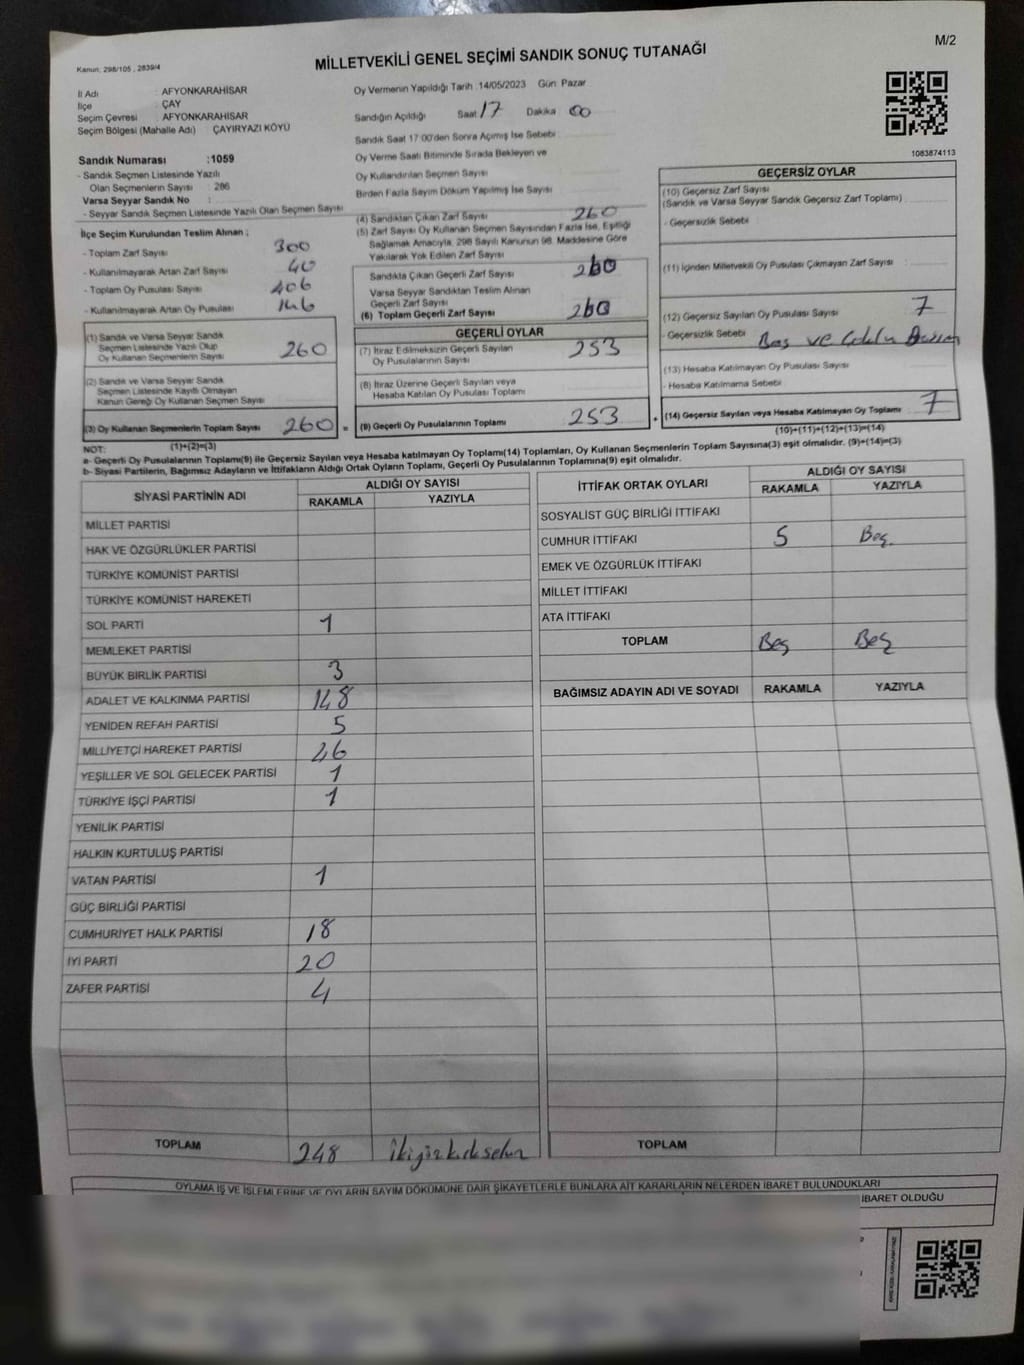 M/2
Kanun: 298/105 , 2839/4
MİLLETVEKİLİ GENEL SEÇİMİ SANDIK SONUÇ TUTANAĞI
İl Adı : AFYONKARAHİSAR
İlçe : ÇAY
Seçim Çevresi : AFYONKARAHİSAR
Seçim Bölgesi (Mahalle Adı) : ÇAYIRYAZI KÖYÜ
Sandık Numarası :1059
- Sandık Seçmen Listesinde Yazılı
Olan Seçmenlerin Sayısı : 286
Varsa Seyyar Sandık No :
- Seyyar Sandık Seçmen Listesinde Yazılı Olan Seçmen Sayısı
Oy Vermenin Yapıldığı Tarih :14/05/2023 Gün: Pazar
Sandığın Açıldığı Saat 17 Dakika 00
Sandık Saat 17:00'den Sonra Açılmış İse Sebebi :
Oy Verme Saati Bitiminde Sırada Bekleyen ve
Oy Kullandırılan Seçmen Sayısı
Birden Fazla Sayım Döküm Yapılmış İse Sayısı
1083874113
İlçe Seçim Kurulundan Teslim Alınan ;
- Toplam Zarf Sayısı 300
- Kullanılmayarak Artan Zarf Sayısı 40
- Toplam Oy Pusulası Sayısı 406
- Kullanılmayarak Artan Oy Pusulası 146
(1) Sandık ve Varsa Seyyar Sandık
Seçmen Listesinde Yazılı Olup
Oy Kullanan Seçmenlerin Sayısı 260
(2) Sandık ve Varsa Seyyar Sandık
Seçmen Listesinde Kayıtlı Olmayan
Kanun Gereği Oy Kullanan Seçmen Sayısı
(3) Oy Kullanan Seçmenlerin Toplam Sayısı 260
(1)+(2)=(3)
(4) Sandıktan Çıkan Zarf Sayısı 260
(5) Zarf Sayısı Oy Kullanan Seçmen Sayısından Fazla İse, Eşitliği
Sağlamak Amacıyla, 298 Sayılı Kanunun 98. Maddesine Göre
Yakılarak Yok Edilen Zarf Sayısı
Sandıkta Çıkan Geçerli Zarf Sayısı 260
Varsa Seyyar Sandıktan Teslim Alınan
Geçerli Zarf Sayısı
(6) Toplam Geçerli Zarf Sayısı 260
GEÇERLİ OYLAR
(7) İtiraz Edilmeksizin Geçerli Sayılan
Oy Pusulalarının Sayısı 253
(8) İtiraz Üzerine Geçerli Sayılan veya
Hesaba Katılan Oy Pusulası Toplamı
= (9) Geçerli Oy Pusulalarının Toplamı 253 +
GEÇERSİZ OYLAR
(10) Geçersiz Zarf Sayısı
(Sandık ve Varsa Seyyar Sandık Geçersiz Zarf Toplamı)
- Geçersizlik Sebebi :
(11) İçinden Milletvekili Oy Pusulası Çıkmayan Zarf Sayısı :
(12) Geçersiz Sayılan Oy Pusulası Sayısı 7
- Geçersizlik Sebebi : Boş ve
(13) Hesaba Katılmayan Oy Pusulası Sayısı :
- Hesaba Katılmama Sebebi :
(14) Geçersiz Sayılan veya Hesaba Katılmayan Oy Toplamı 7
(10)+(11)+(12)+(13)=(14)
NOT:
a- Geçerli Oy Pusulalarının Toplamı(9) ile Geçersiz Sayılan veya Hesaba katılmayan Oy Toplamı(14) Toplamları, Oy Kullanan Seçmenlerin Toplam Sayısına(3) eşit olmalıdır. (9)+(14)=(3)
b- Siyasi Partilerin, Bağımsız Adayların ve İttifakların Aldığı Ortak Oyların Toplamı, Geçerli Oy Pusulalarının Toplamına(9) eşit olmalıdır.
SİYASİ PARTİNİN ADI ALDIĞI OY SAYISI
RAKAMLA YAZIYLA
MİLLET PARTİSİ
HAK VE ÖZGÜRLÜKLER PARTİSİ
TÜRKİYE KOMÜNİST PARTİSİ
TÜRKİYE KOMÜNİST HAREKETİ
SOL PARTİ 1
MEMLEKET PARTİSİ
BÜYÜK BİRLİK PARTİSİ 3
ADALET VE KALKINMA PARTİSİ 148
YENİDEN REFAH PARTİSİ 5
MİLLİYETÇİ HAREKET PARTİSİ 46
YEŞİLLER VE SOL GELECEK PARTİSİ 1
TÜRKİYE İŞÇİ PARTİSİ 1
YENİLİK PARTİSİ
HALKIN KURTULUŞ PARTİSİ
VATAN PARTİSİ 1
GÜÇ BİRLİĞİ PARTİSİ
CUMHURİYET HALK PARTİSİ 18
İYİ PARTİ 20
ZAFER PARTİSİ 4
TOPLAM 248 ikiyüzkırksekiz
İTTİFAK ORTAK OYLARI ALDIĞI OY SAYISI
RAKAMLA YAZIYLA
SOSYALİST GÜÇ BİRLİĞİ İTTİFAKI
CUMHUR İTTİFAKI 5 Beş
EMEK VE ÖZGÜRLÜK İTTİFAKI
MİLLET İTTİFAKI
ATA İTTİFAKI
TOPLAM Beş Beş
BAĞIMSIZ ADAYIN ADI VE SOYADI RAKAMLA YAZIYLA
TOPLAM
OYLAMA İŞ VE İŞLEMLERİNE VE OYLARIN SAYIM DÖKÜMÜNE DAİR ŞİKAYETLERLE BUNLARA AİT KARARLARIN NELERDEN İBARET BULUNDUKLARI
İBARET OLDUĞU